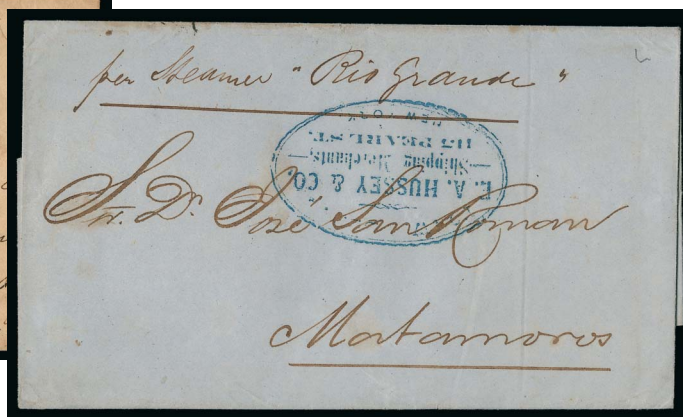 per Steamer "Rio Grande"
E. A. HUSSEY & CO.
Shipping Merchants,
115 PEARL ST.
NEW YORK
Sr. Dn. José San Roman
Matamoros